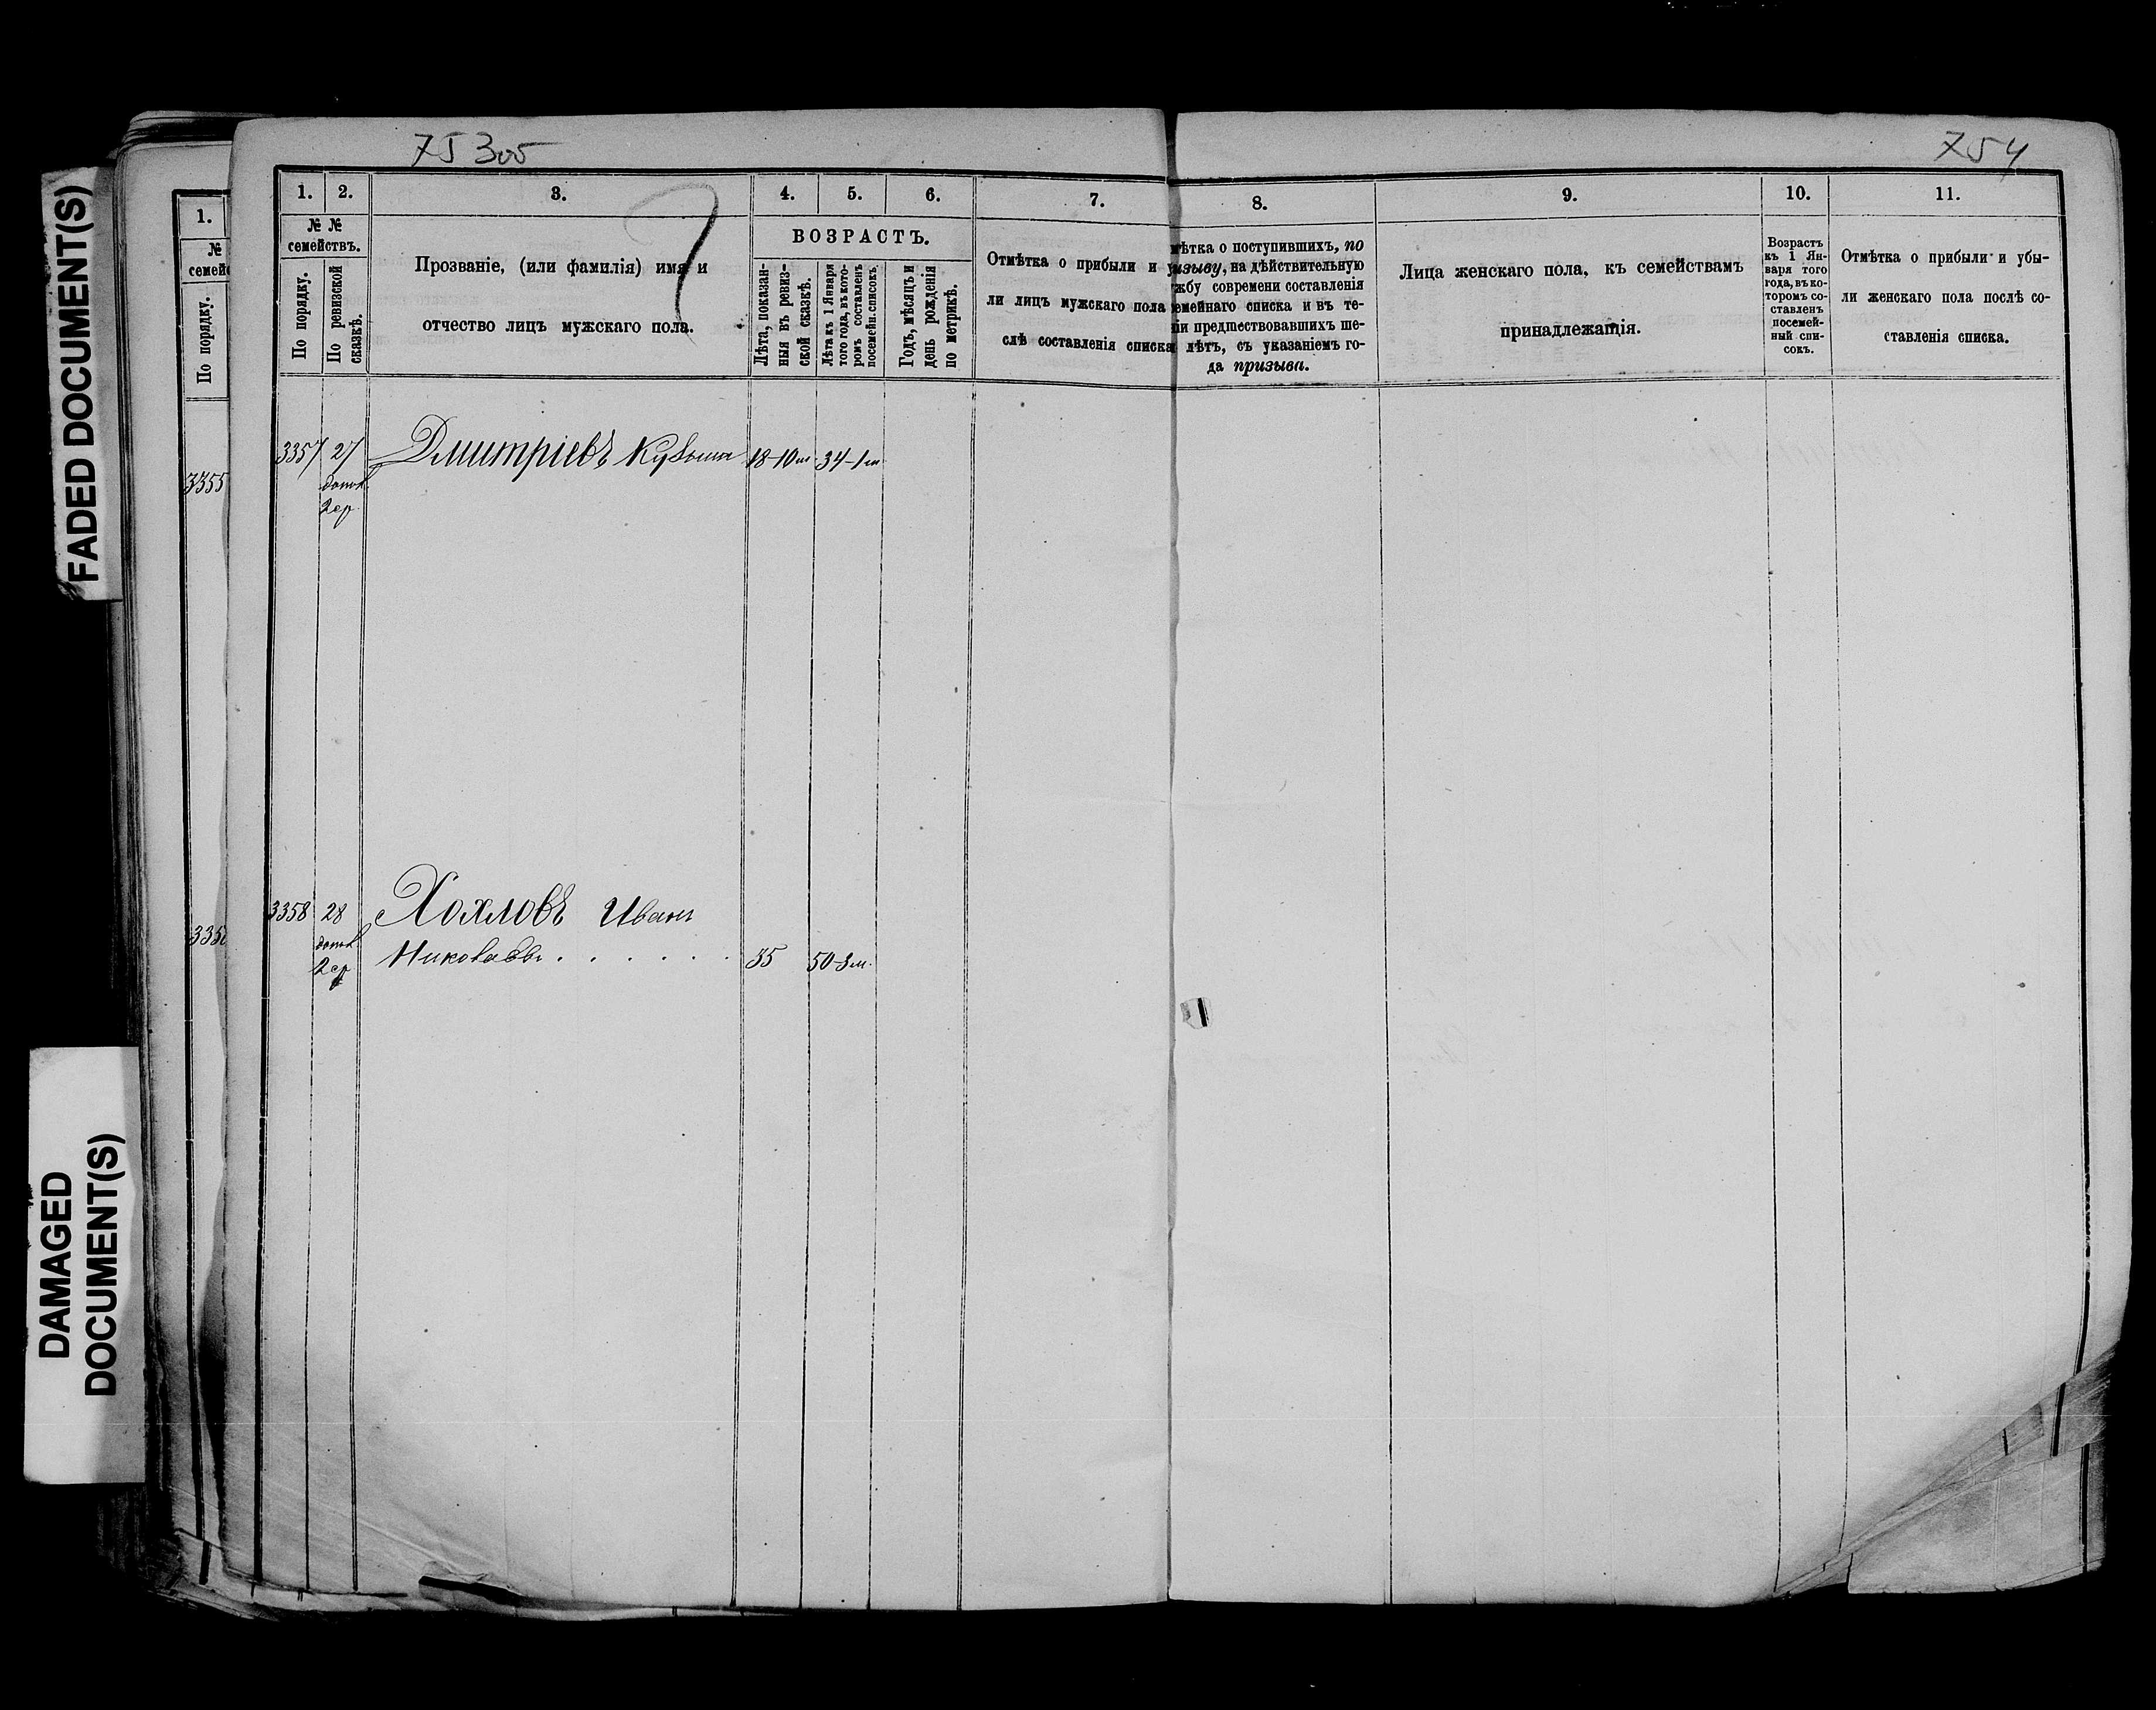 FADED DOCUMENT(S)
DAMAGED
DOCUMENT(S)
1.
№
По порядку.
3355
75305
754
1. 2. 3. 4. 5. 6. 7. 8. 9. 10. 11.
№ №
семействъ.
По порядку.
По ревизской
сказкѣ.
Прозваніе, (или фамилія) имя и
отчество лицъ мужскаго пола.
ВОЗРАСТЪ.
Лѣта, показан-
ныя въ ревиз-
ской сказкѣ.
Лѣта къ 1 Января
того года, въ кото-
ромъ составленъ
посемейн. списокъ.
Годъ, мѣсяцъ и
день рожденія
по метрикѣ.
Отмѣтка о прибыли и
ли лицъ мужскаго пола
слѣ составленія списка
мѣтка о поступившихъ, по
изыву, на дѣйствительную
жбу современи составленія
емейнаго списка и въ те-
іи предшествовавшихъ ше-
лѣтъ, съ указаніемъ го-
да призыва.
Лица женскаго пола, къ семействамъ
принадлежащія.
Возрастъ
къ 1 Ян-
варя того
года, въ ко-
торомъ со-
ставленъ
посемей-
ный спи-
сокъ.
Отмѣтка о прибыли и убы-
ли женскаго пола послѣ со-
ставленія списка.
3357 27 Дмитріевъ Кузьма 18-10м 34-1м
2ср
3358 28 Хохловъ Иванъ
2ср Николаевъ . . . . . . 35 50-3м.